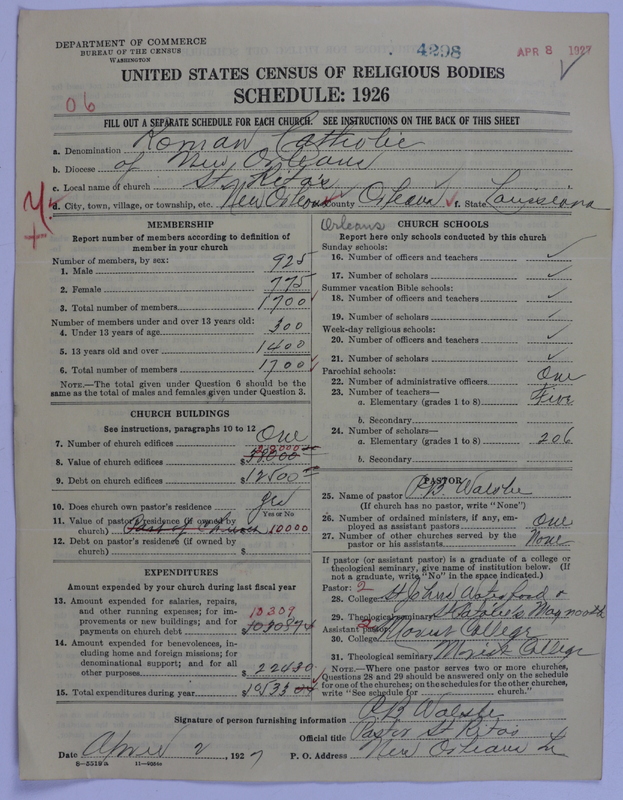 DEPARTMENT OF COMMERCE
BUREAU OF THE CENSUS
WASHINGTON
4298
APR 8 1927
UNITED STATES CENSUS OF RELIGIOUS BODIES
SCHEDULE: 1926
06
FILL OUT A SEPARATE SCHEDULE FOR EACH CHURCH. SEE INSTRUCTIONS ON THE BACK OF THIS SHEET
a. Denomination Roman Catholic
b. Diocese of New Orleans
c. Local name of church St Rita's
d. City, town, village, or township, etc. New Orleans County Orleans f. State Louisiana
Orleans
MEMBERSHIP
Report number of members according to definition of
member in your church
Number of members, by sex:
1. Male 925
2. Female 775
3. Total number of members 1700
Number of members under and over 13 years old:
4. Under 13 years of age 300
5. 13 years old and over 1400
6. Total number of members 1700
NOTE.—The total given under Question 6 should be the
same as the total of males and females given under Question 3.
CHURCH BUILDINGS
See instructions, paragraphs 10 to 12
7. Number of church edifices One
8. Value of church edifices $
9. Debt on church edifices $12500
10. Does church own pastor's residence yes
Yes or No
11. Value of pastor's residence (if owned by
church) Part of Church 10000
12. Debt on pastor's residence (if owned by
church) $
EXPENDITURES
Amount expended by your church during last fiscal year
13. Amount expended for salaries, repairs,
and other running expenses; for im-
provements or new buildings; and for
payments on church debt
14. Amount expended for benevolences, in-
cluding home and foreign missions; for
denominational support; and for all
other purposes $
15. Total expenditures during year $
CHURCH SCHOOLS
Report here only schools conducted by this church
Sunday schools:
16. Number of officers and teachers ✓
17. Number of scholars ✓
Summer vacation Bible schools:
18. Number of officers and teachers ✓
19. Number of scholars ✓
Week-day religious schools:
20. Number of officers and teachers ✓
21. Number of scholars ✓
Parochial schools:
22. Number of administrative officers One
23. Number of teachers—
a. Elementary (grades 1 to 8) Five
b. Secondary
24. Number of scholars—
a. Elementary (grades 1 to 8) 206
b. Secondary
PASTOR
25. Name of pastor P.B. Walshe
(If church has no pastor, write "None")
26. Number of ordained ministers, if any, em-
ployed as assistant pastors One
27. Number of other churches served by the
pastor or his assistants None
If pastor (or assistant pastor) is a graduate of a college or
theological seminary, give name of institution below. (If
not a graduate, write "No" in the space indicated.)
Pastor: 2
28. College St Johns Waterford
29. Theological seminary Maynooth
Assistant pastor:
30. College College
31. Theological seminary College
NOTE.—Where one pastor serves two or more churches,
Questions 28 and 29 should be answered only on the schedule
for one of the churches; on the schedules for the other churches,
write "See schedule for church."
Signature of person furnishing information P B Walshe
Official title Pastor St Rita's
Date April 2, 1927 P. O. Address New Orleans La
8—5519a